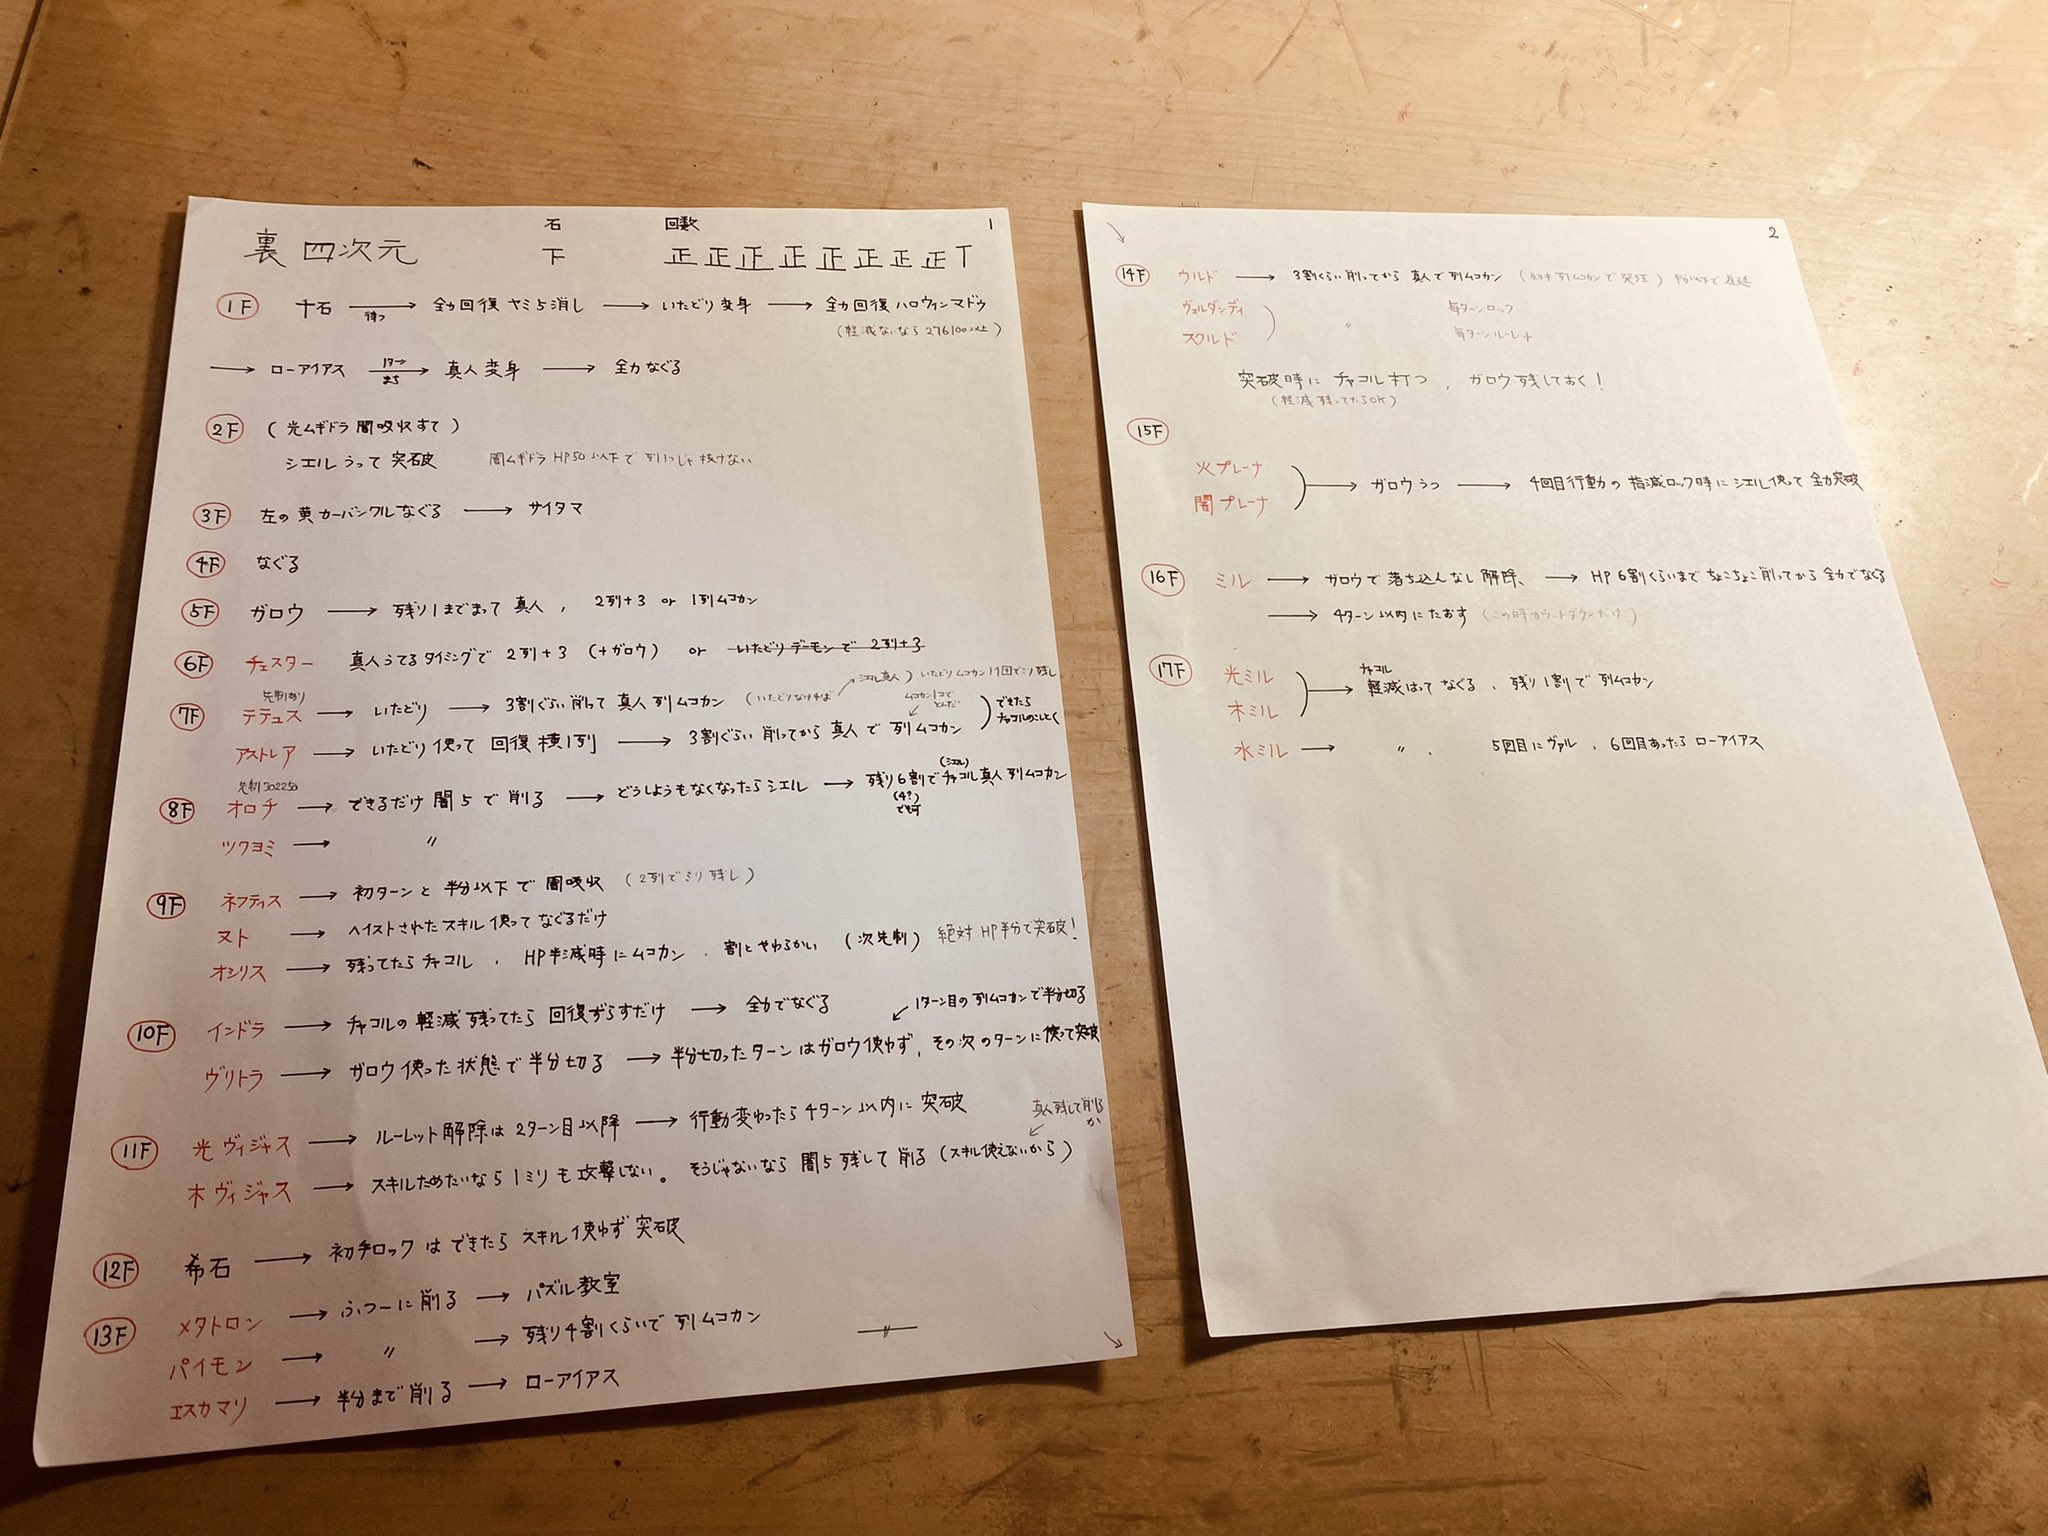 1
石 回数
裏 四次元 下 正正正正正正正正T
1F 十石 → 待つ 全力回復 ヤミ5消し → いたどり変身 → 全力回復 ハロウィンマドゥ
(軽減ないなら 276100以上)
→ ローアイアス → 1ターンまつ 真人変身 → 全力なぐる
2F (光ムギドラ 闇吸収すて)
シエルうって 突破 闇ムギドラ HP50以下で 列1つじゃ 抜けない
3F 左の黄カーバンクルなぐる → サイタマ
4F なぐる
5F ガロウ → 残り1までまって 真人, 2列+3 or 1列ムコカン
6F チェスター 真人うてるタイミングで 2列+3 (+ガロウ) or いたどりデーモンで 2列+3
先制あり (いたどりなければ シエル真人) いたどりムコカン1個でミリ残し
7F テテュス → いたどり → 3割ぐらい削って 真人 列ムコカン
ムコカン1コで
アストレア → いたどり使って 回復横1列 → 3割ぐらい削ってから 真人で 列ムコカン
できたら
チャコルのこしとく
先制 302250
8F オロチ → できるだけ闇5で削る → どうしようもなくなったらシエル → 残り6割で チャコル真人 列ムコカン
(シエル)
(4?)
でも可
ツクヨミ → 〃
9F ネフティス → 初ターンと 半分以下で 闇吸収 (2列でミリ残し)
ヌト → ヘイストされたスキル使って なぐるだけ
オシリス → 残ってたらチャコル, HP半減時にムコカン. 割とやわらかい (次先制) 絶対HP半分で突破!
10F インドラ → チャコルの軽減残ってたら 回復ずらすだけ → 全力でなぐる
1ターン目の列ムコカンで半分切る
ヴリトラ → ガロウ使った状態で半分切る → 半分切ったターンはガロウ使わず, その次のターンに使って突破
11F 光ヴィジャス → ルーレット解除は2ターン目以降 → 行動変わったら4ターン以内に突破
真人残して削るか
木ヴィジャス → スキルためたいなら1ミリも攻撃しない。そうじゃないなら 闇5残して削る (スキル使えないから)
12F 希石 → 初手ロックはできたらスキル使わず突破
13F メタトロン → ふつーに削る → パズル教室
パイモン → 〃 → 残り4割くらいで 列ムコカン
エスカマリ → 半分まで削る → ローアイアス
2
14F ウルド → 3割くらい削ってから 真人で列ムコカン (初手列ムコカンで発狂) 半分以下で遅延
ヴェルダンディ 毎ターンロック
スクルド 〃 毎ターンルーレット
突破時にチャコル打つ, ガロウ残しておく!
(軽減残ってたらOK)
15F
火プレーナ
闇プレーナ → ガロウうつ → 4回目行動の指減ロック時にシエル使って全力突破
16F ミル → ガロウで落ちコンなし解除、 → HP6割くらいまでちょこちょこ削ってから全力でなぐる
→ 4ターン以内にたおす (この時カウントダウンだけ)
17F 光ミル
木ミル → チャコル 軽減はってなぐる、残り1割で列ムコカン
水ミル → 〃. 5回目にヴァル, 6回目あったらローアイアス